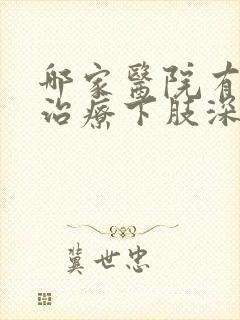 邮家醫院有
治療下肢深
龔世忠